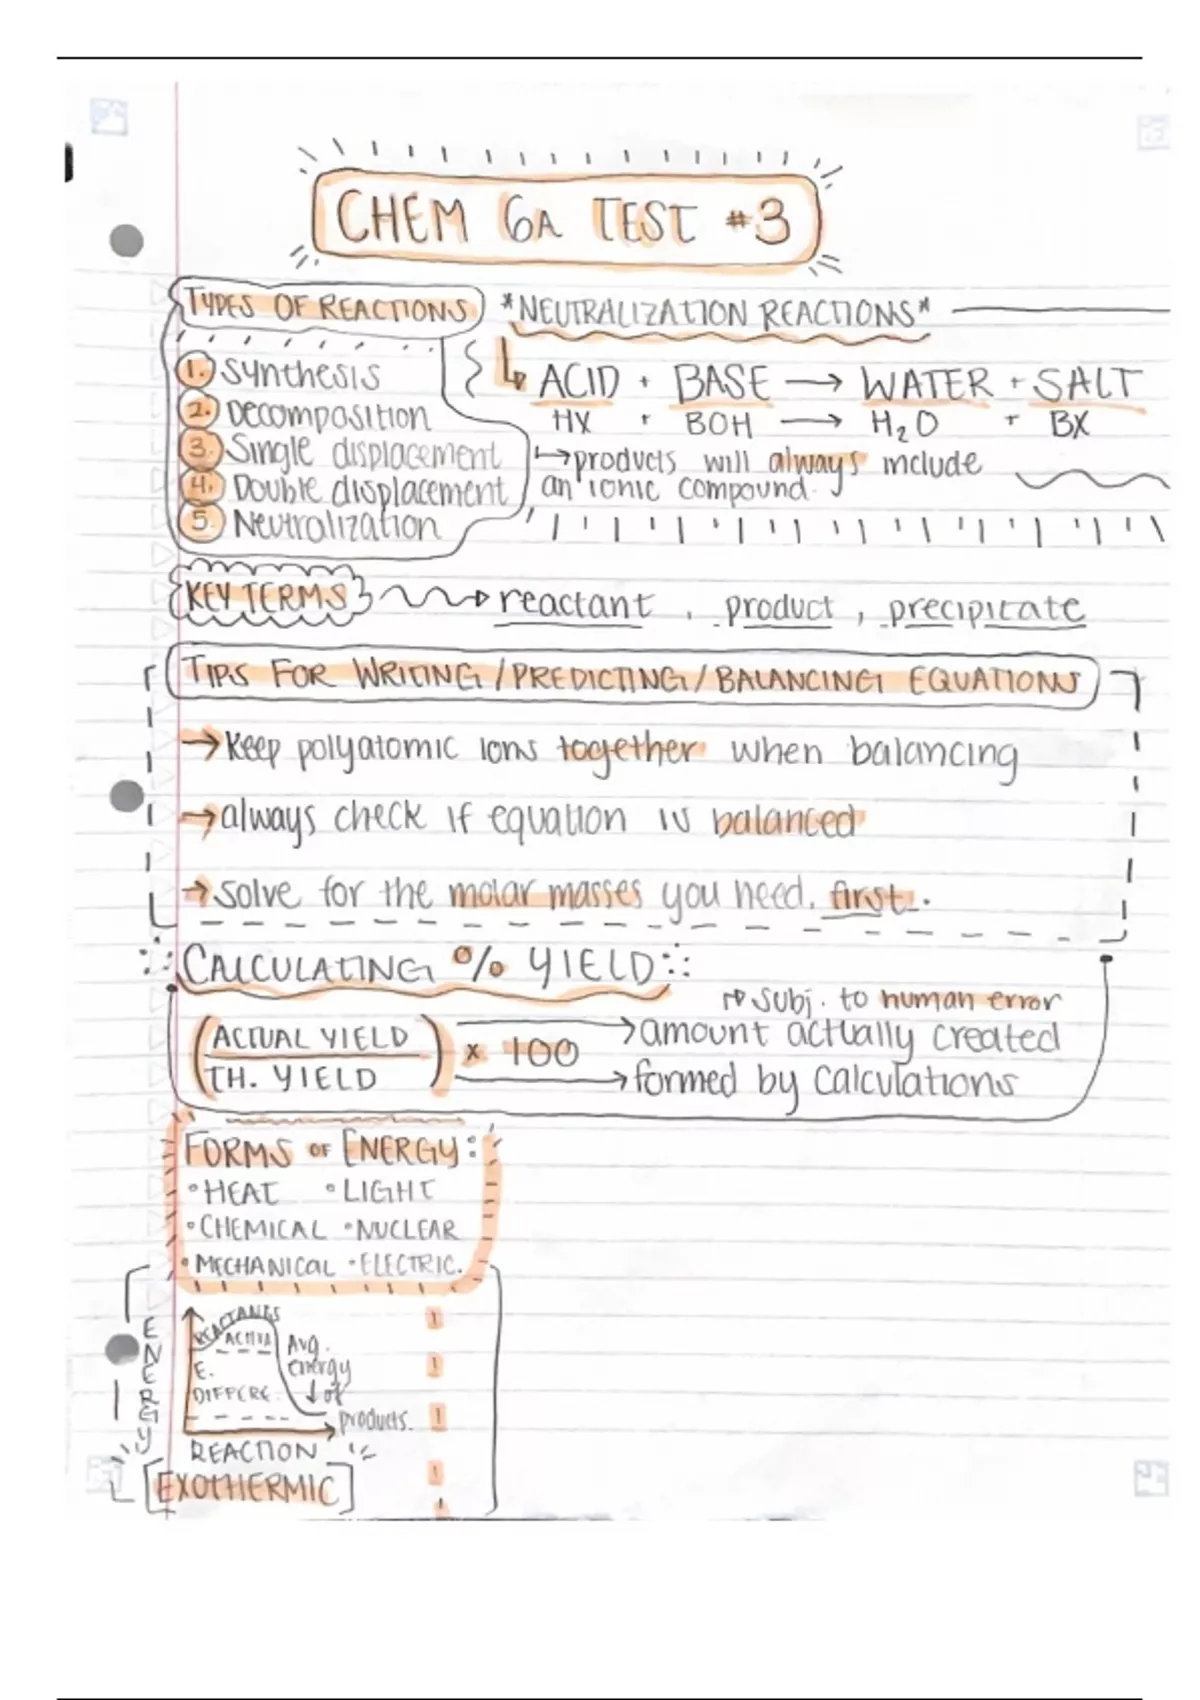 CHEM 6A TEST #3
TYPES OF REACTIONS
1. Synthesis
2. Decomposition
3. Single displacement
4. Double displacement
5. Neutralization
*NEUTRALIZATION REACTIONS*
ACID + BASE → WATER + SALT
HX + BOH → H₂O + BX
↳ products will always include
an ionic compound.
KEY TERMS → reactant, product, precipitate
TIPS FOR WRITING/PREDICTING/BALANCING EQUATIONS
→ Keep polyatomic ions together when balancing
→ always check if equation is balanced
→ solve for the molar masses you need, first.
CALCULATING % YIELD:
↱ subj. to human error
(ACTUAL YIELD / TH. YIELD) × 100
→ amount actually created
→ formed by calculations
FORMS OF ENERGY:
• HEAT • LIGHT
• CHEMICAL • NUCLEAR
• MECHANICAL • ELECTRIC.
ENERGY
ACTIVA
E.
DIFFERE.
Avg.
energy
↓ of
products.
REACTION
[EXOTHERMIC]